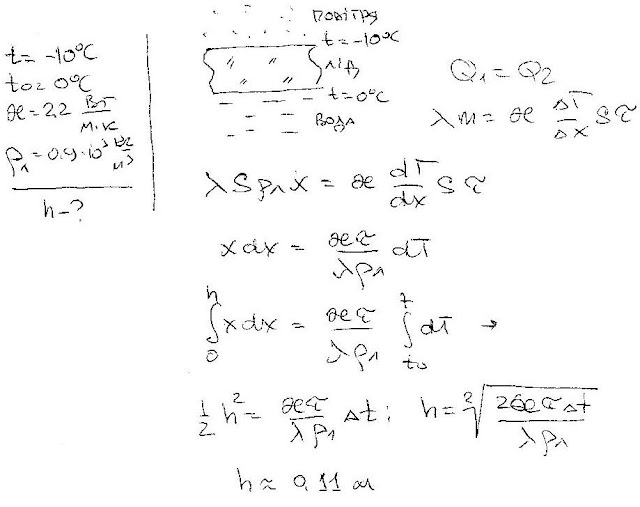 t = -10°C
t₀ = 0°C
æ = 2,2 Вт/м·к
ρ₁ = 0.9·10³ кг/м³
h - ?
повітря
t = -10°C
лід
t = 0°C
вода
Q₁ = Q₂
λm = æ ΔT/Δx Sτ
λSρ₁x = æ dT/dx Sτ
xdx = æτ/λρ₁ dT
∫₀ʰ xdx = æτ/λρ₁ ∫ₜ₀ᵗ dT →
1/2 h² = æτ/λρ₁ Δt; h = ²√(2æτΔt/λρ₁)
h ≈ 0,11 м